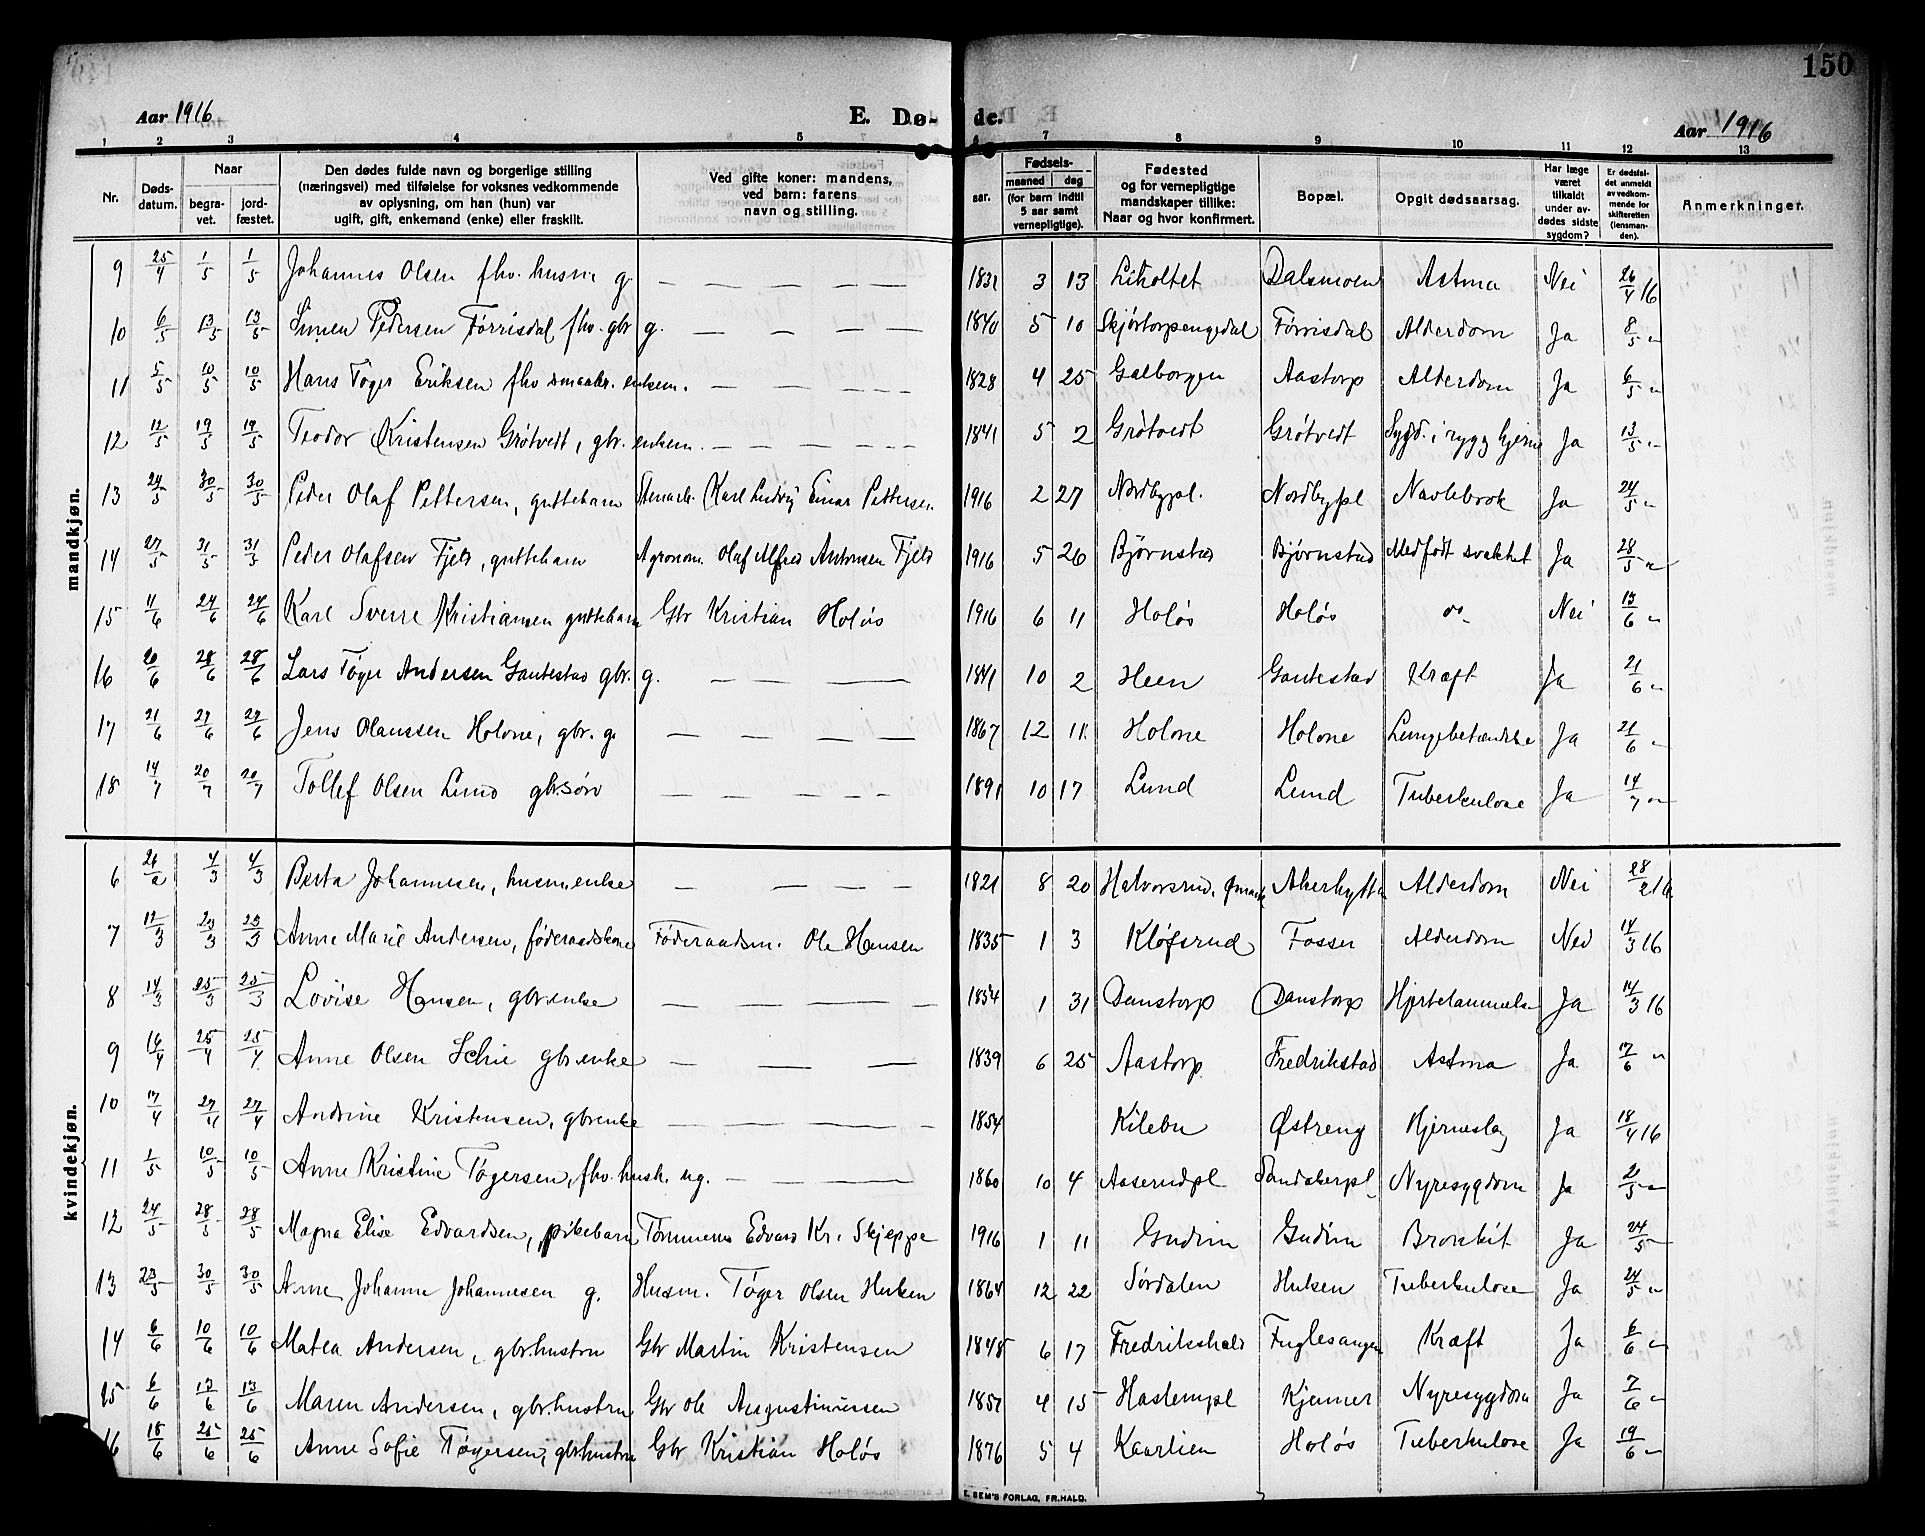 150
Aar 1916 E. Dø- de. Aar 1916
1 2 3 4 5 6 7 8 9 10 11 12 13
Nr. Døds-datum. Naar begra-vet. jord-fæstet. Den dødes fulde navn og borgerlige stilling (næringsvei) med tilføielse for voksnes vedkommende av oplysning, om han (hun) var ugift, gift, enkemand (enke) eller fraskilt. Ved gifte koner: mandens, ved barn: farens navn og stilling. Fødsels- aar. maaned dag (for barn indtil 5 aar samt vernepligtige). Fødested og for vernepligtige mandskaper tillike: Naar og hvor konfirmert. Bopæl. Opgit dødsaarsag. Har læge været tilkaldt under av-dødes sidste sygdom? Er dødsfal-det anmeldt av vedkom-mende for skifteretten (lensman-den). Anmerkninger.
mandkjøn.
9 25/4 1/5 1/5 Johannes Olsen fhv. husm. g. — — — — — 1831 3 13 Liholtet Dalsmoen Astma Nei 26/4 16
10 6/5 13/5 13/5 Simen Pedersen Tørrisdal fhv. gbr g. — — — — 1840 5 10 Skjørtorpengedal Tørrisdal Alderdom Ja 8/5 "
11 5/5 10/5 10/5 Hans Tøger Eriksen fhv smaabr. enkem. — — — — 1828 4 25 Galborgen Aastorp Alderdom Ja 6/5 "
12 12/5 19/5 19/5 Teodor Kristensen Grøtvedt, gbr. enkem. — — — — 1841 5 2 Grøtvedt Grøtvedt Sygd. i rygg hjerne Ja 13/5 "
13 24/5 30/5 30/5 Peder Olaf Pettersen, guttebarn Stenarb. Karl Ludvig Einar Pettersen 1916 2 27 Nordbypl. Nordbypl Navlebrok Ja 24/5 "
14 27/5 31/5 31/5 Peder Olafsen Fjeld, guttebarn Agronom. Olaf Alfred Antonsen Fjeld 1916 5 26 Bjørnstad Bjørnstad Medfødt svakhet Ja 28/5 "
15 11/6 24/6 24/6 Karl Sverre Kristiansen guttebarn Gbr Kristian Holøs 1916 6 11 Holøs Holøs do Nei 13/6 "
16 20/6 28/6 28/6 Lars Tøger Andersen Gautestad gbr. g. — — — 1841 10 2 Heen Gautestad Kræft Ja 21/6 "
17 21/6 27/6 27/6 Jens Olaussen Holone, gbr. g. — — — — 1867 12 11 Holone Holone Lungebetændelse Ja 21/6 "
18 14/7 20/7 20/7 Tollef Olsen Lund gbr.søn — — — — — 1891 10 17 Lund Lund Tuberkulose Ja 14/7 "
kvindekjøn.
6 26/2 4/3 4/3 Berta Johannesen, husm.enke — — — — 1821 8 20 Halvorsrud, Ømark Akerhytta Alderdom Nei 28/2 16
7 12/3 23/3 23/3 Anne Marie Andersen, føderaadskone Føderaadsm. Ole Hansen 1835 1 3 Kløfsrud Fosser Alderdom Nei 14/3 16
8 14/3 25/3 25/3 Lovise Hansen, gbr.enke — — — — 1834 1 31 Danstorp Danstorp Hjertelammelse Ja 14/3 16
9 16/4 25/4 25/4 Anne Olsen Schie gbr.enke — — — 1839 6 25 Aastorp Fredrikstad Astma Ja 17/6 "
10 17/4 27/4 27/4 Andrine Kristensen, gbrenke — — — — 1854 Kilebu Østreng Hjerneslag Ja 18/4 16
11 1/5 10/5 10/5 Anne Kristine Tøgersen, fhv. hush. ug. — — — 1860 10 4 Aaserudpl Sandakerpl. Nyresygdom Ja 2/5 "
12 24/5 28/5 28/5 Magna Elise Edvardsen, pikebarn Tømmerm Edvard Kr. Skjeppe 1916 1 11 Gudim Gudim Bronkit Ja 24/5 "
13 23/5 30/5 30/5 Anne Johanne Johannesen g. Husm. Tøger Olsen Huken 1864 12 22 Sørdalen Huken Tuberkulose Ja 24/5 "
14 6/6 10/6 10/6 Matea Andersen, gbr.hustru Gbr Martin Kristensen 1848 6 17 Fredrikshald Fuglesangen Kræft Ja 6/6 "
15 6/6 13/6 13/6 Maren Andersen, gbr.hustru Gbr Ole Augustinussen 1857 4 15 Hastempl Kjenner Nyresygdom Ja 7/6 "
16 18/6 25/6 25/6 Anne Sofie Tøgersen, gbr.hustru Gbr Kristian Holøs 1876 5 4 Kaarlien Holøs Tuberkulose Ja 19/6 "
E. SEM'S FORLAG, FR.HALD.